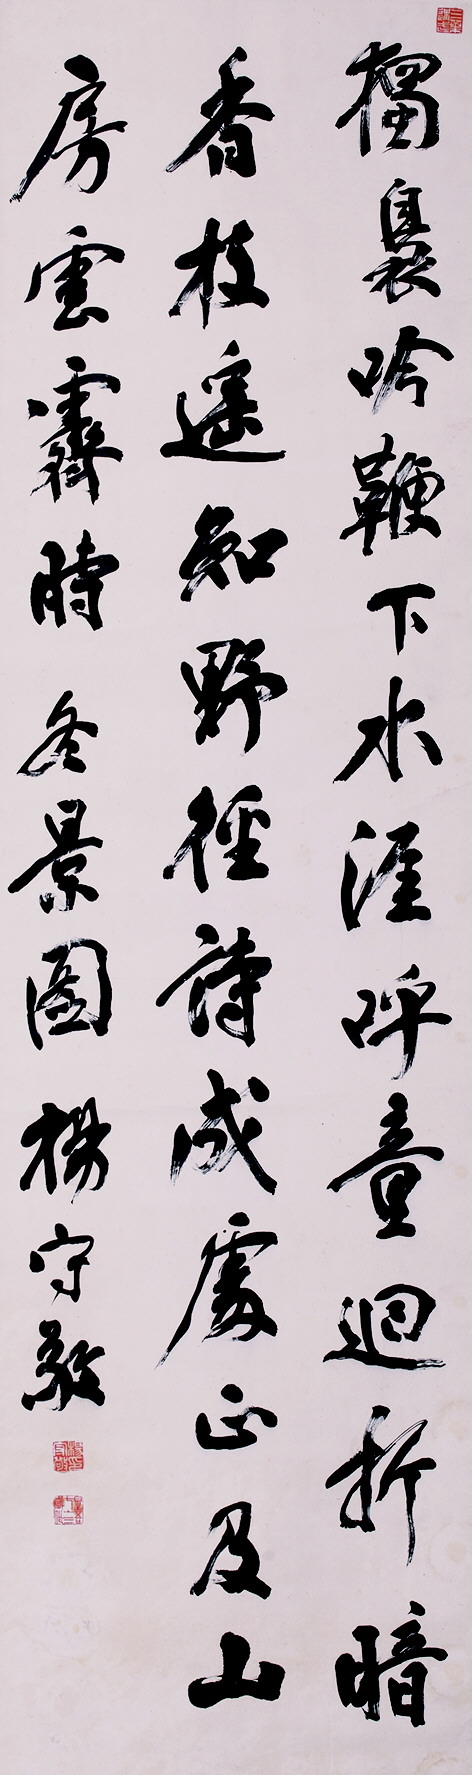 裊吟鞭下水涯呼童迴折暗
香枝遥知野徑詩成處正及山
房雲霽時 冬景圖 楊守敬